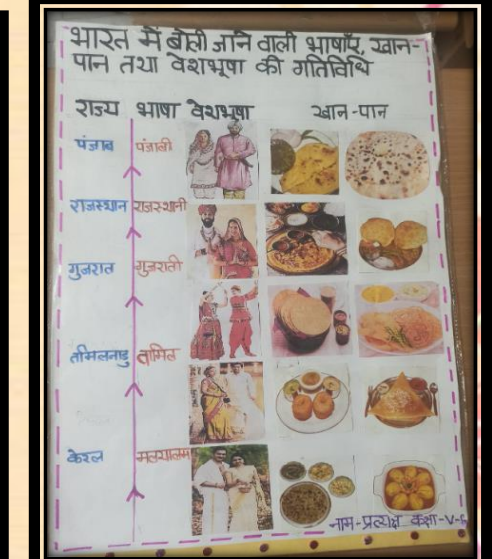 भारत में बोली जाने वाली भाषाएँ, खान-
पान तथा वेशभूषा की गतिविधि
राज्य भाषा वेशभूषा खान-पान
पंजाब पंजाबी
राजस्थान राजस्थानी
गुजरात गुजराती
तमिलनाडु तामिल
केरल मलयालम
नाम-प्रत्यक्ष कक्षा-V-